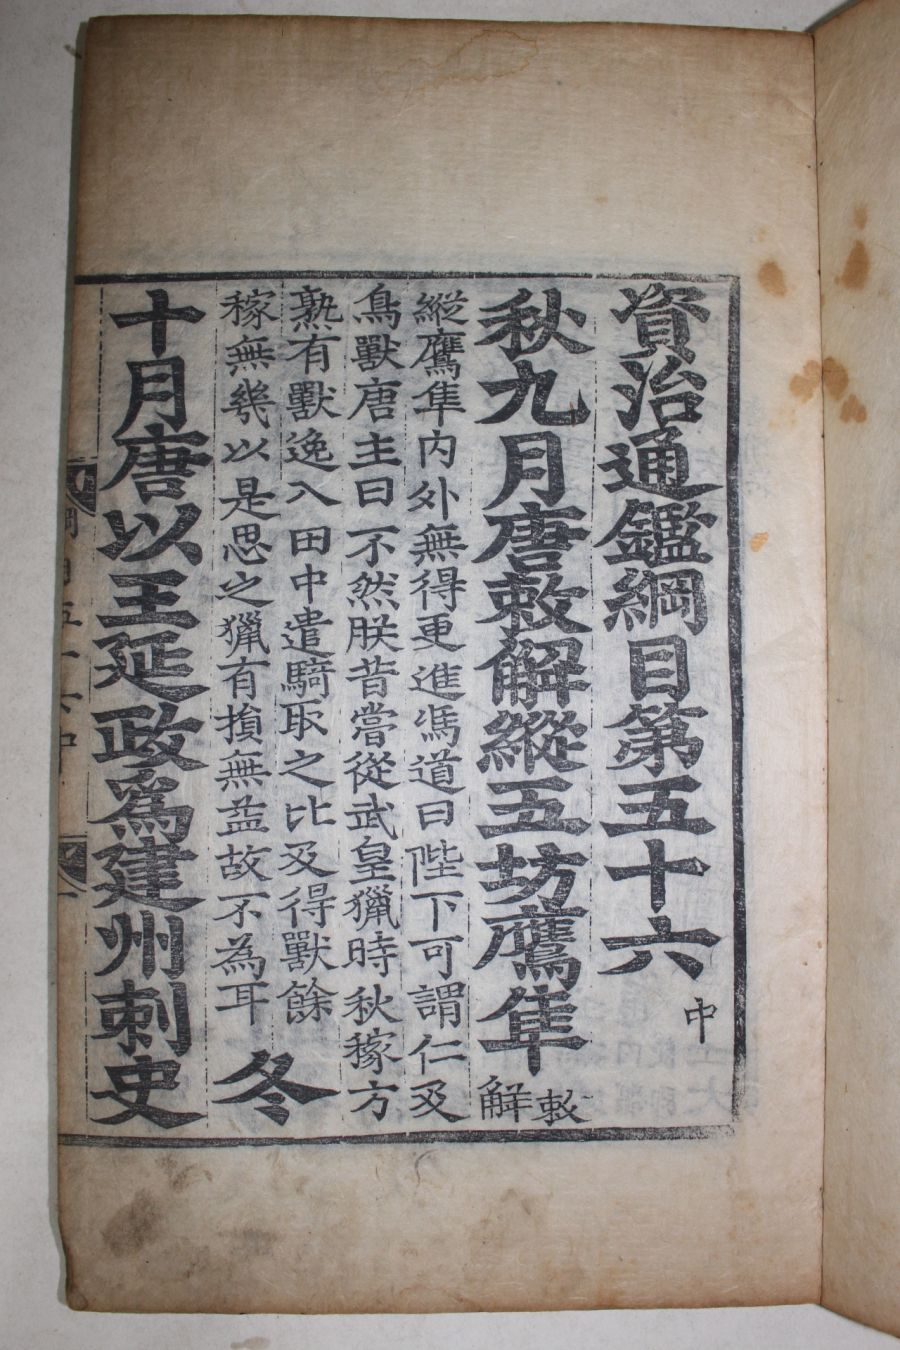 資治通鑑綱目第五十六 中
秋九月唐敕解縱五坊鷹隼 敕解
縱鷹隼内外無得更進馮道曰陛下可謂仁及
鳥獸唐主曰不然朕昔嘗從武皇獵時秋稼方
熟有獸逸入田中遣騎取之比及得獸餘
稼無幾以是思之獵有損無益故不為耳 冬
十月唐以王延政爲建州刺史